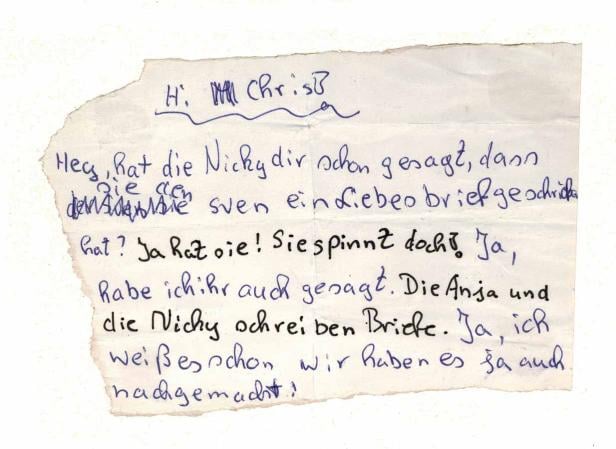 Hi Chris!
Hey, hat die Nicky dir schon gesagt, dass
sie den
Sven ein Liebesbrief geschrieben
hat? Ja hat sie! Sie spinnt doch!. Ja,
habe ich ihr auch gesagt. Die Anja und
die Nicky schreiben Briefe. Ja, ich
weiß es schon wir haben es ja auch
nachgemacht!